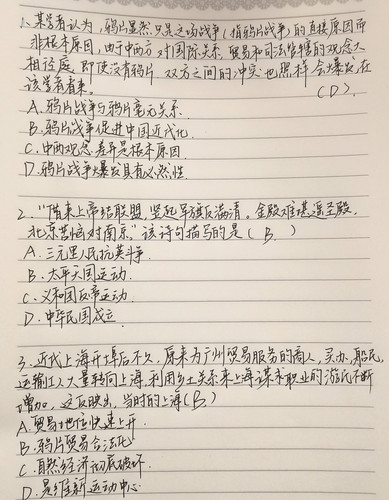 1.某学者认为,鸦片显然只是这场战争(指鸦片战争)的直接原因而
非根本原因,由于中西方对国际关系、贸易和司法管辖的观念大
相径庭,即使没有鸦片,双方之间的冲突也照样会爆发,在
该学者看来 (D)
A.鸦片战争与鸦片毫无关系.
B.鸦片战争促进中国近代化.
C.中西观念差异是根本原因
D.鸦片战争爆发具有必然性
2."借来上帝结联盟,竖起早旗反满清。金殿难谋遥圣殿,
北京苦恼对南京。"该诗句描写的是(B)
A.三元里人民抗英斗争.
B.太平天国运动.
C.义和团反帝运动.
D.中华民国成立.
3.近代上海开埠后不久,原来为广州贸易服务的商人,买办,船民,
运输工人大量转向上海,利用乡土关系来上海谋求职业的游民不断
增加,这反映出,当时的上海(B)
A.贸易地位快速上升.
B.鸦片贸易合法化
C.自然经济彻底破坏.
D.是维新运动中心.